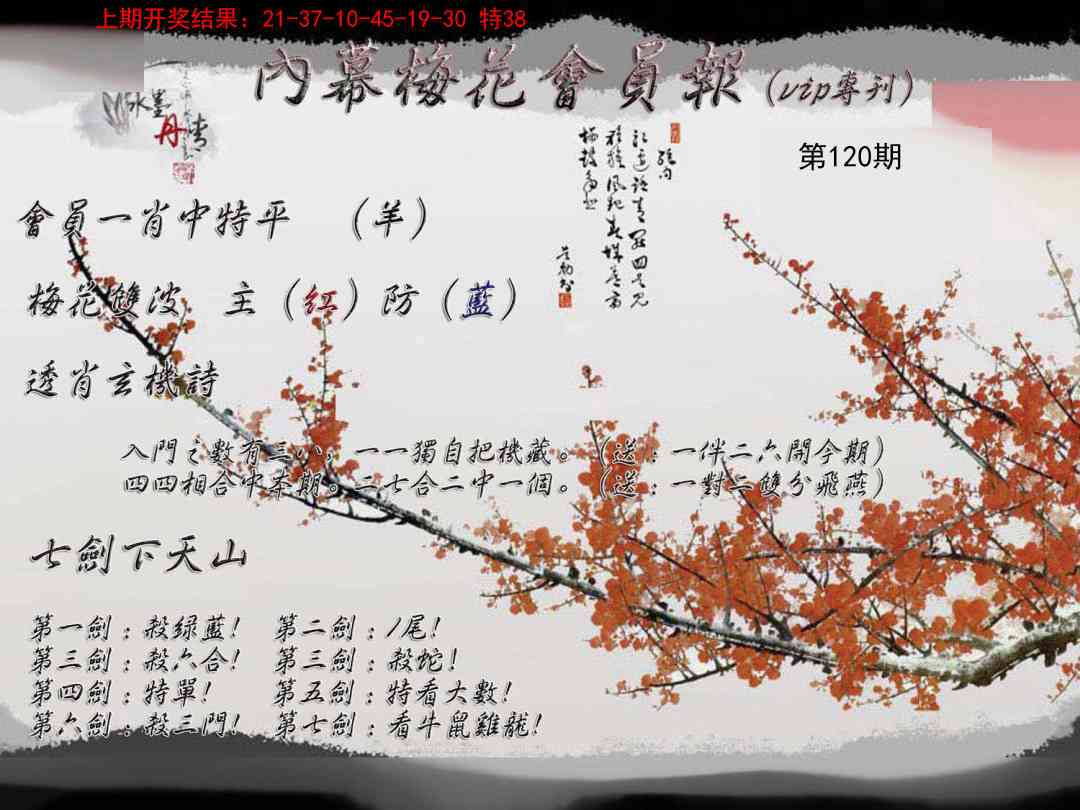 上期开奖结果：21-37-10-45-19-30 特38
內幕梅花會員報(vip專刊)
水墨
丹青
第120期
會員一肖中特平 （羊）
梅花雙波 主（红）防（藍）
透肖玄機詩
入門之數有三八，一一獨自把機藏。（送：一伴二六開今期）
四四相合中本期。二七合二中一個。（送：一對二雙分飛燕）
七劍下天山
第一劍：殺绿藍！ 第二劍：1尾！
第三劍：殺六合！ 第三劍：殺蛇！
第四劍：特單！ 第五劍：特看大數！
第六劍：殺三門！ 第七劍：看牛鼠雞龍！